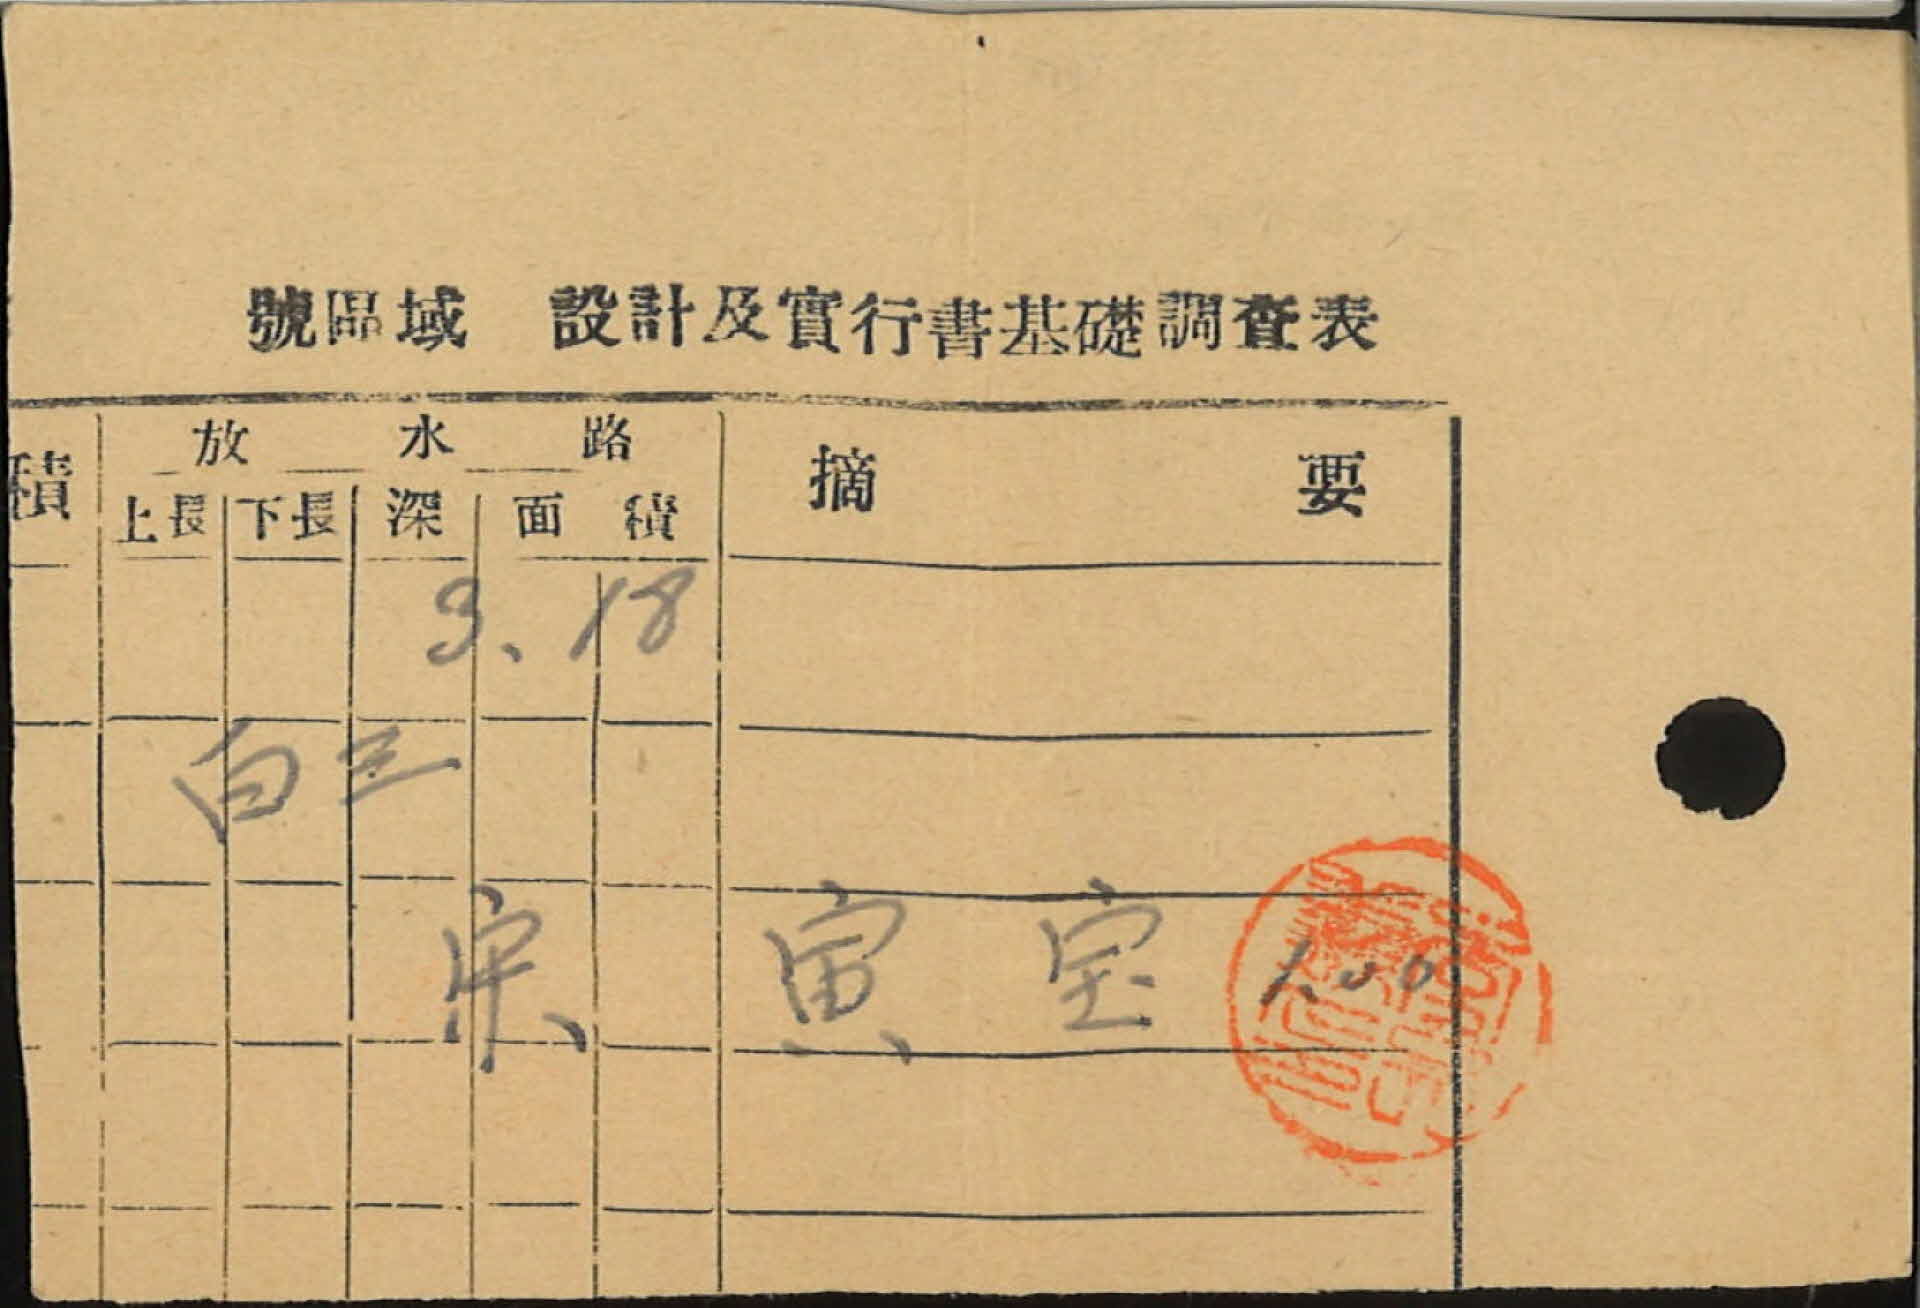 號區域 設計及實行書基礎調査表
積 放水路 摘要
上長 下長 深 面積
3.18
白三
宋寅宝 1.00